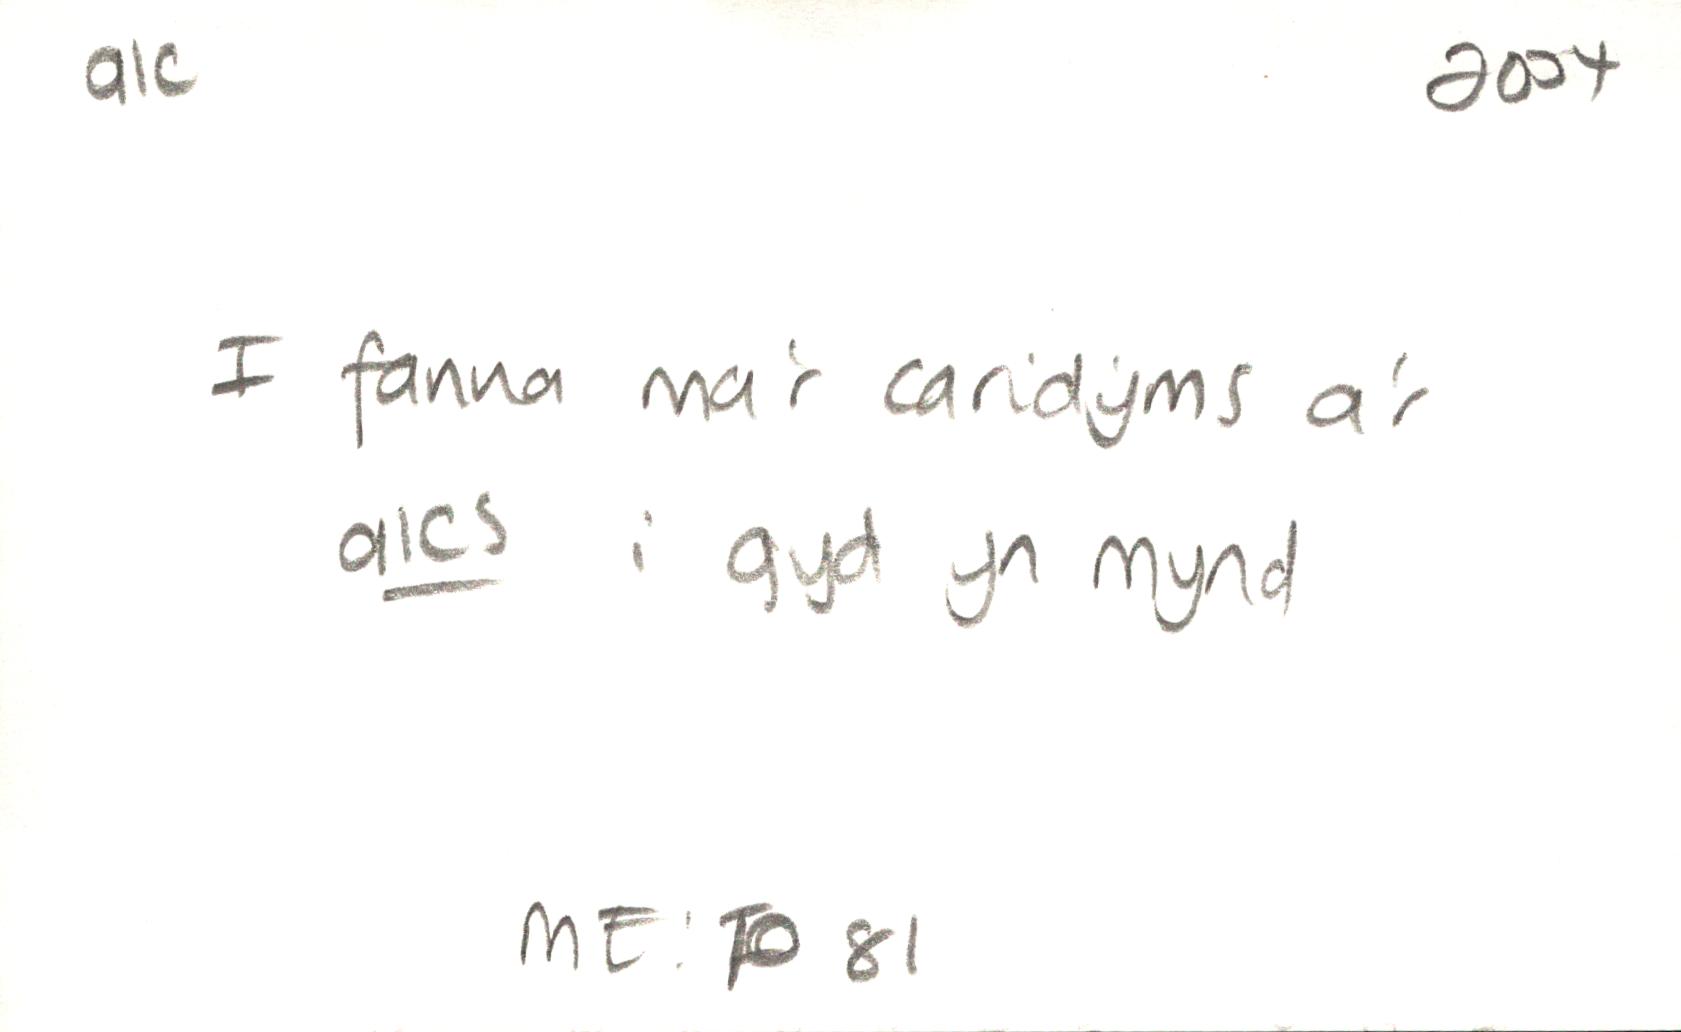 alc 2004
I fanna ma'r caridýms a'r
alcs i gyd yn mynd
ME: TO 81